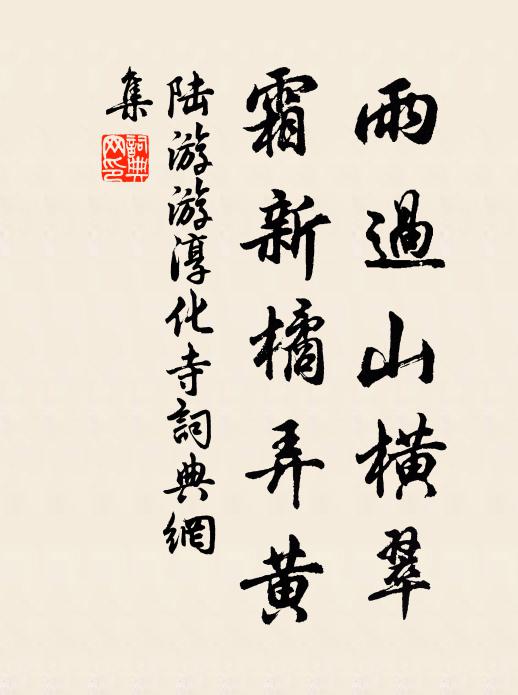 雨過山橫翠
霜新橘弄黃
陸游游淳化寺詞典網
集
詞典網印